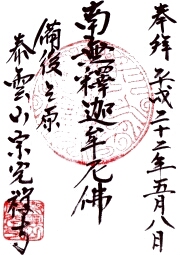 奉拜 平成二十二年五月八日
南無釋迦牟尼佛
備後三原
泰雲山宗光禅寺